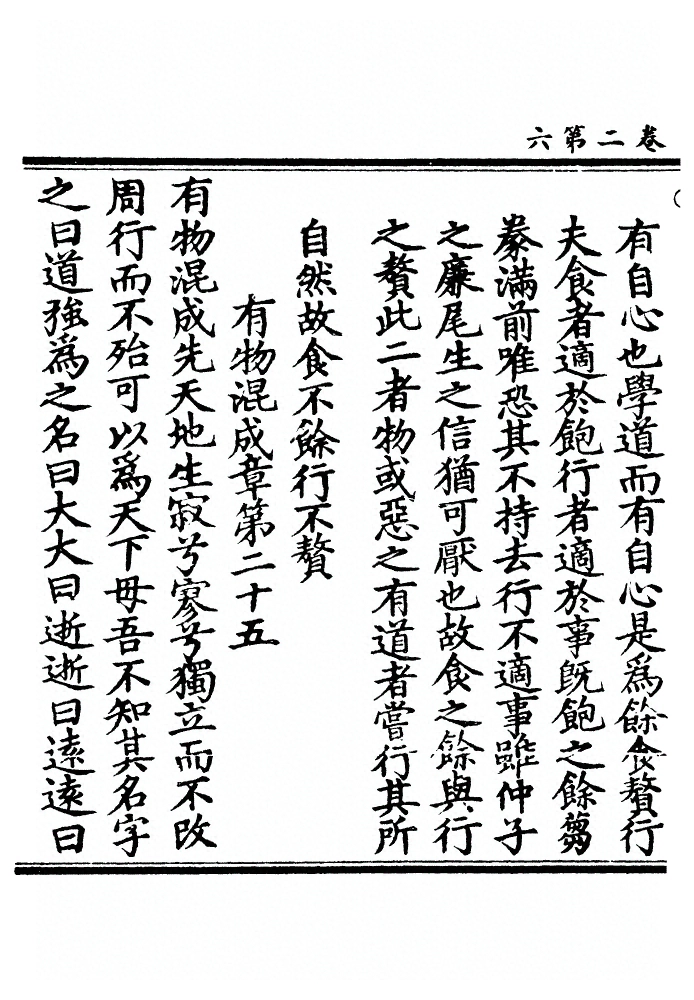 卷二第六
有自心也學道而有自心是爲餘食贅行
夫食者適於飽行者適於事旣飽之餘芻
豢滿前唯恐其不持去行不適事雖仲子
之廉尾生之信猶可厭也故食之餘與行
之贅此二者物或惡之有道者嘗行其所
自然故食不餘行不贅
有物混成章第二十五
有物混成先天地生寂兮寥兮獨立而不改
周行而不殆可以爲天下母吾不知其名字
之曰道強爲之名曰大大曰逝逝曰遠遠曰